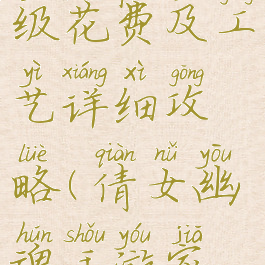 级花费及工
yì xiáng xì gōng
艺详细攻
lüè qiàn nǚ yōu
略(倩女幽
hún shǒu yóu jiā
魂手游家